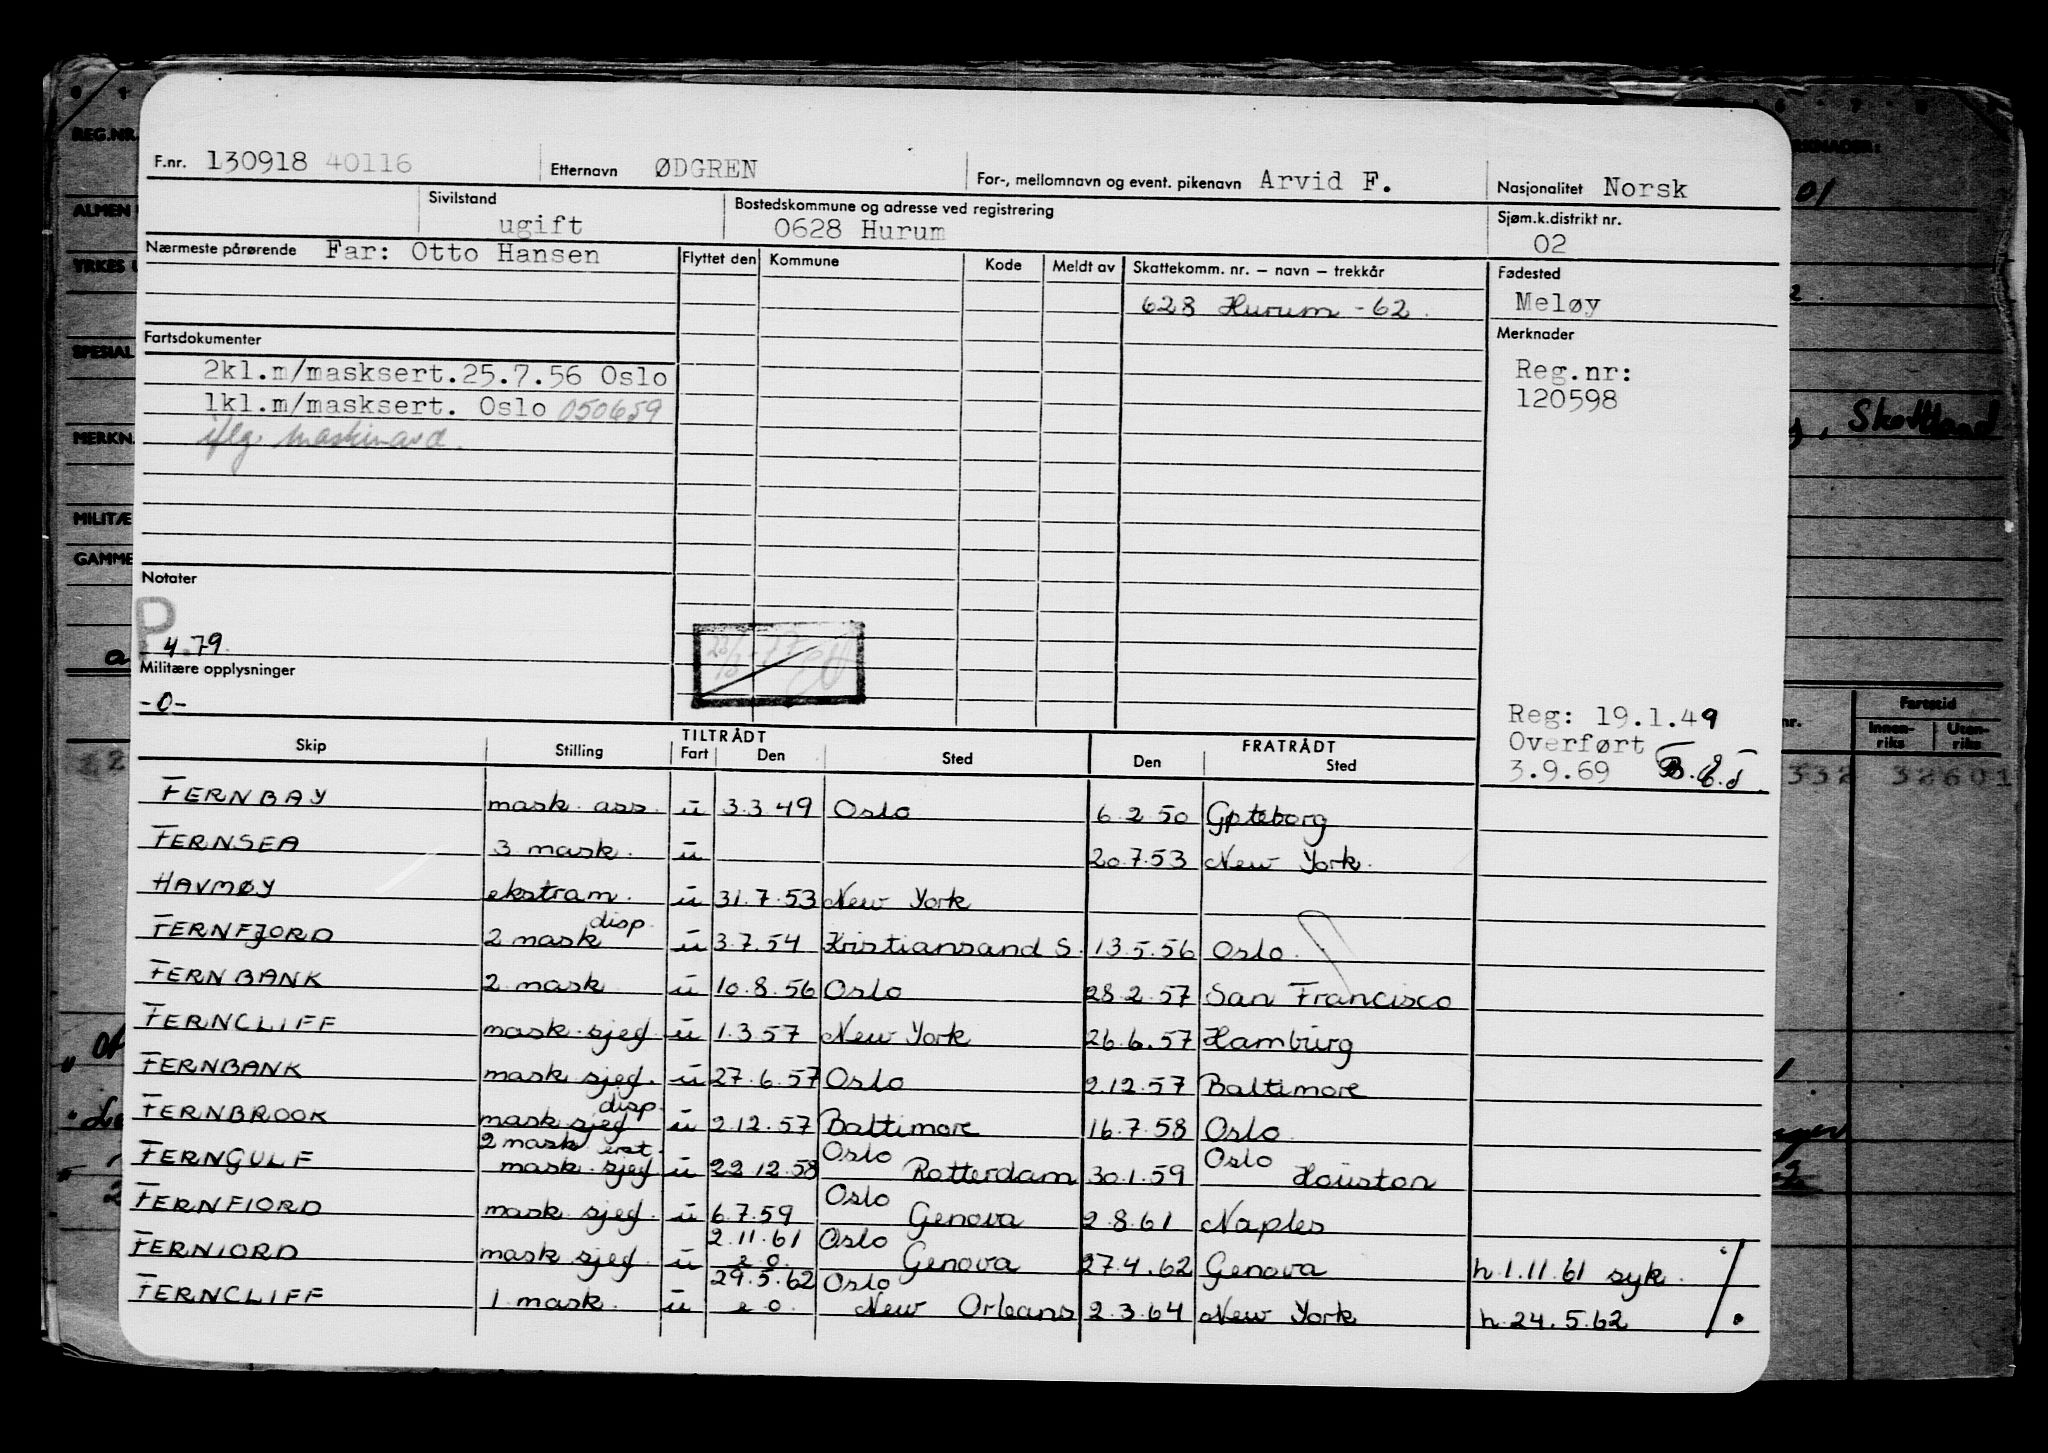 F.nr. 130918 40116 Etternavn ØDGREN For-, mellomnavn og event. pikenavn Arvid F. Nasjonalitet Norsk
Sivilstand ugift Bostedskommune og adresse ved registrering 0628 Hurum Sjøm.k.distrikt nr. 02
Nærmeste pårørende Far: Otto Hansen Flyttet den Kommune Kode Meldt av Skattekomm. nr. – navn – trekkår Fødested
628 Hurum - 62. Meløy
Fartsdokumenter Merknader
2kl.m/masksert.25.7.56 Oslo Reg.nr:
1kl.m/masksert. Oslo 050659 120598
iflg. maskinavd.
Notater
P
4.79.
Militære opplysninger
-0-
Reg: 19.1.49
Overført
3.9.69
TILTRÅDT FRATRÅDT
Skip Stilling Fart Den Sted Den Sted
FERNBAY mask. ass. u 3.3.49 Oslo 6.2.50 Gøteborg
FERNSEA 3 mask. u 20.7.53 New York.
HAVMØY ekstram. u 31.7.53 New York
FERNFJORD 2 mask disp. u 3.7.54 Kristiansand S. 13.5.56 Oslo.
FERNBANK 2 mask u 10.8.56 Oslo 28.2.57 San Francisco
FERNCLIFF mask.sjef. u 1.3.57 New York 26.6.57 Hamburg
FERNBANK mask sjef. u 27.6.57 Oslo 2.12.57 Baltimore
FERNBROOK mask sjef disp. u 2.12.57 Baltimore 16.7.58 Oslo.
FERNGULF 2 mask erst. mask.sjef. u 22.12.58 Oslo Rotterdam 30.1.59 Oslo Houston
FERNFIORD mask sjef. u 6.7.59 Oslo Genova 2.8.61 Naples
FERNIORD mask.sjef. u 2.11.61 e.o. Oslo Genova 27.4.62 Genova h.1.11.61 syk.
FERNCLIFF 1 mask. u 29.5.62 e.o. Oslo New Orleans 2.3.64 New York h.24.5.62
REG.NR.
ALMEN
YRKES
SPESIAL
MERKN
MILITÆ
GAMME
01
Skottland
Fartstid
Innenriks Utenriks
332 32601